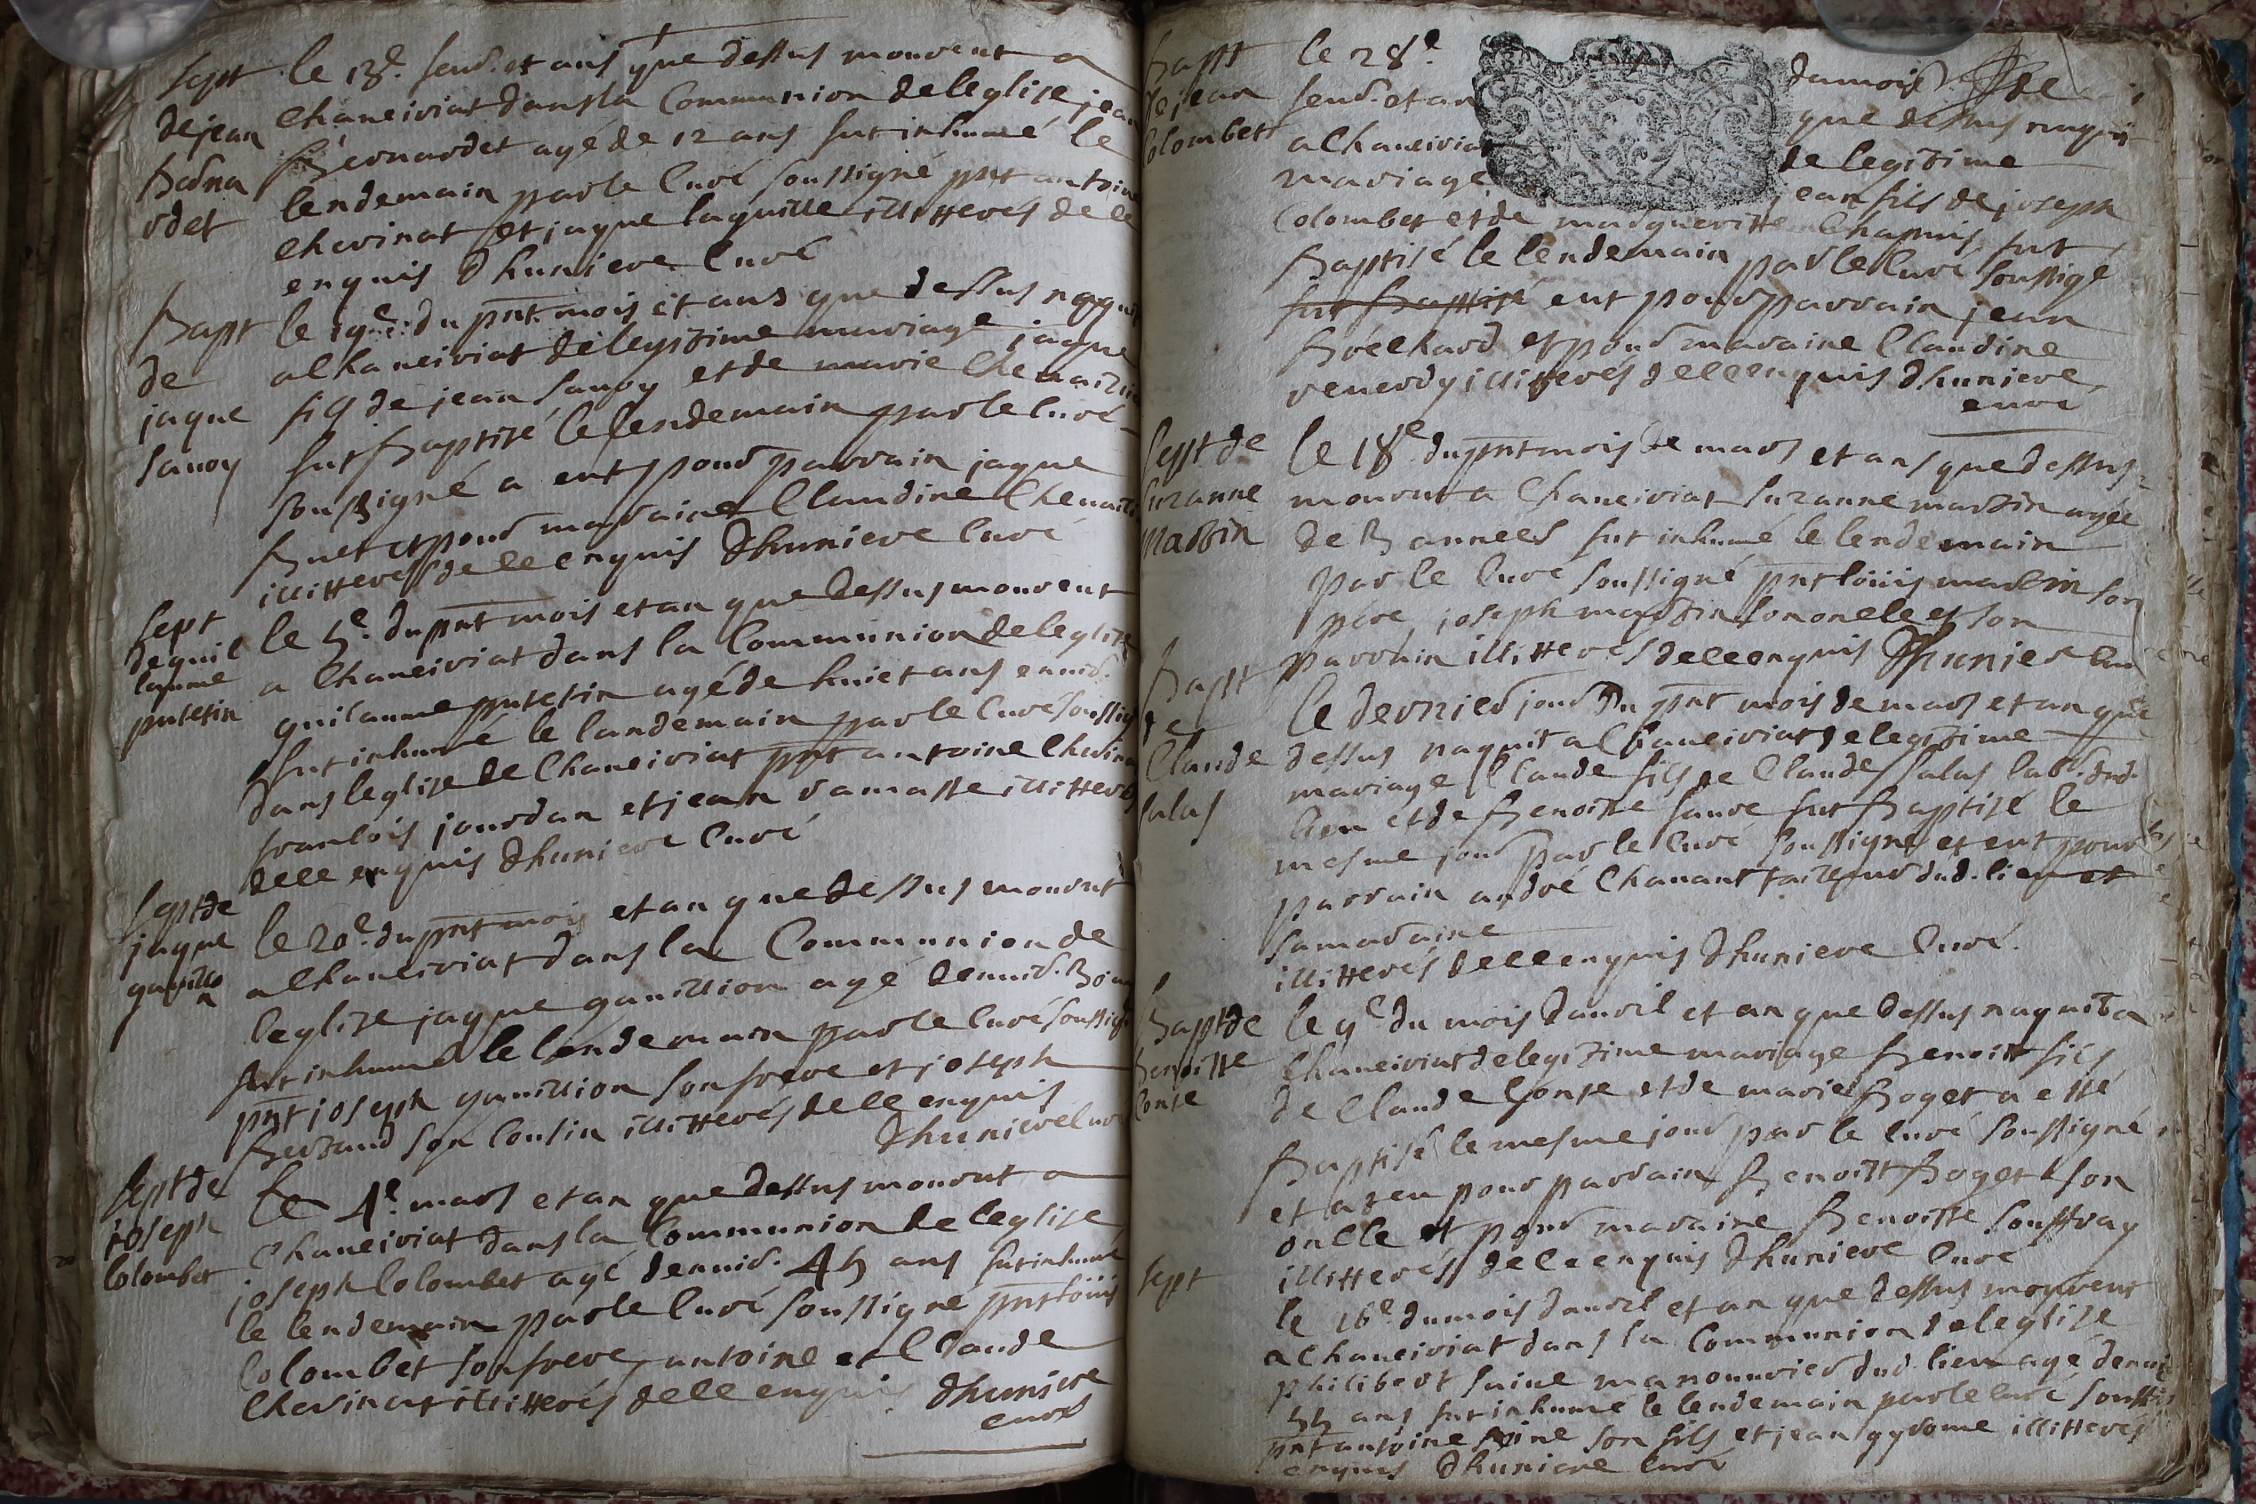 Sept
de jean
Berna
rdet
le 13e. feur. et ans que dessus mourut a
Chaneiriat dans la Communion de leglise jean
Bernardet agé de 12 ans fut inhumé le
lendemain par le Curé soussigné pnt antoine
chevinat et jaque laguille illitterés de ce
enquis Dhuniere Curé
Bapt
de
jaque
sauoy
le 19e. du pnt. mois et ans que dessus naquit
a Chaneiriat de legitime mariage jaque
fils de jean sauoy et de marie
fut Baptisé le lendemain par le Curé
soussigné a eut pour parrain jaque
Buet et pour maraine Claudine
illitterés de ce enquis Dhuniere Curé
Sept
de guil
laume
putetin
le 5e. du pnt mois et an que dessus mourut
a Chaneiriat dans la Communion de leglise
guilaume putetin agé de huict ans enuir.
fut inhumé le landemain par le Curé soussig
dans leglise de Chaneiriat pnt antoine Chevina
francois jourdan et jean ramasse illitterés
de ce enquis Dhuniere Curé
Sept de
jaque
gauillo
n
le 20e. du pnt mois et an que dessus mourut
a Chaneiriat dans la Communion de
leglise jaque gauillion agé denuir.
fut inhumé le lendemain par le Curé soussig
pnt joseph gauillion son frere et joseph
Bertaud son Cousin illitterés de ce enquis
Dhuniere Cur
Sept de
joseph
Colombet
Le 4e. mars et an que dessus mourut a
Chaneiriat dans la Communion de leglise
joseph Colombet agé denuir. 45 ans fut inhumé
le lendemain par le Curé soussigné pnt loüis
Colombet son frere, antoine et Claude
Chevinat illitterés de ce enquis Dhuniere
curé
Bapt
de jean
Colombet
le 28e. du mois de
feur. et an que dessus naquit
a Chaneiriat de legitime
mariage jean fils de joseph
Colombet et de margueritte Chapuis fut
Baptisé le lendemain par le Curé soussigé
fut Baptisé eut pour parrain jean
Bréchard et pour maraine Claudine
illitterés de ce enquis Dhuniere
curé
Sept de
suzanne
martin
le 18e. du pnt mois de mars et ans que dessus
mourut a Chaneiriat suzanne martin agée
de 3 annees fut inhumé le lendemain
par le Curé soussigné pnt loüis martin son
pere joseph martin son oncle et son
parrain illitterés de ce enquis Dhuniere Cur
Bapt
de
Claude
salas
le dernier jour du pnt mois de mars et an que
dessus naquit a Chaneiriat de legitime
mariage Claude fils de Claude salas lab. dud.
lieu et de Benoitte faure fut Baptisé le
mesme jour par le Curé soussigné et eut pour
parrain andré Chanant tailleur dud. lieu et
sa maraine
illitterés de ce enquis Dhuniere Curé.
Bapt de
Benoitte
Conte
le 9e. du mois dauril et an que dessus naquit a
Chaneiriat de legitime mariage Benoitt fils
de Claude Conte et de marie Boget a esté
Baptisé le mesme jour par le Curé soussigné
et a eu pour parrain Benoitt Boget son
oncle et pour maraine Benoitte
illitterés de ce enquis Dhuniere Curé
Sept
le 16e. du mois dauril et an que dessus mourut
a Chaneiriat dans la Communion de leglise
philibert saine manouurier dud. lieu agé denui
55 ans fut inhumé le lendemain par le Curé soussig
pnt antoine saine son fils et jean illitterés
enquis Dhuniere Curé